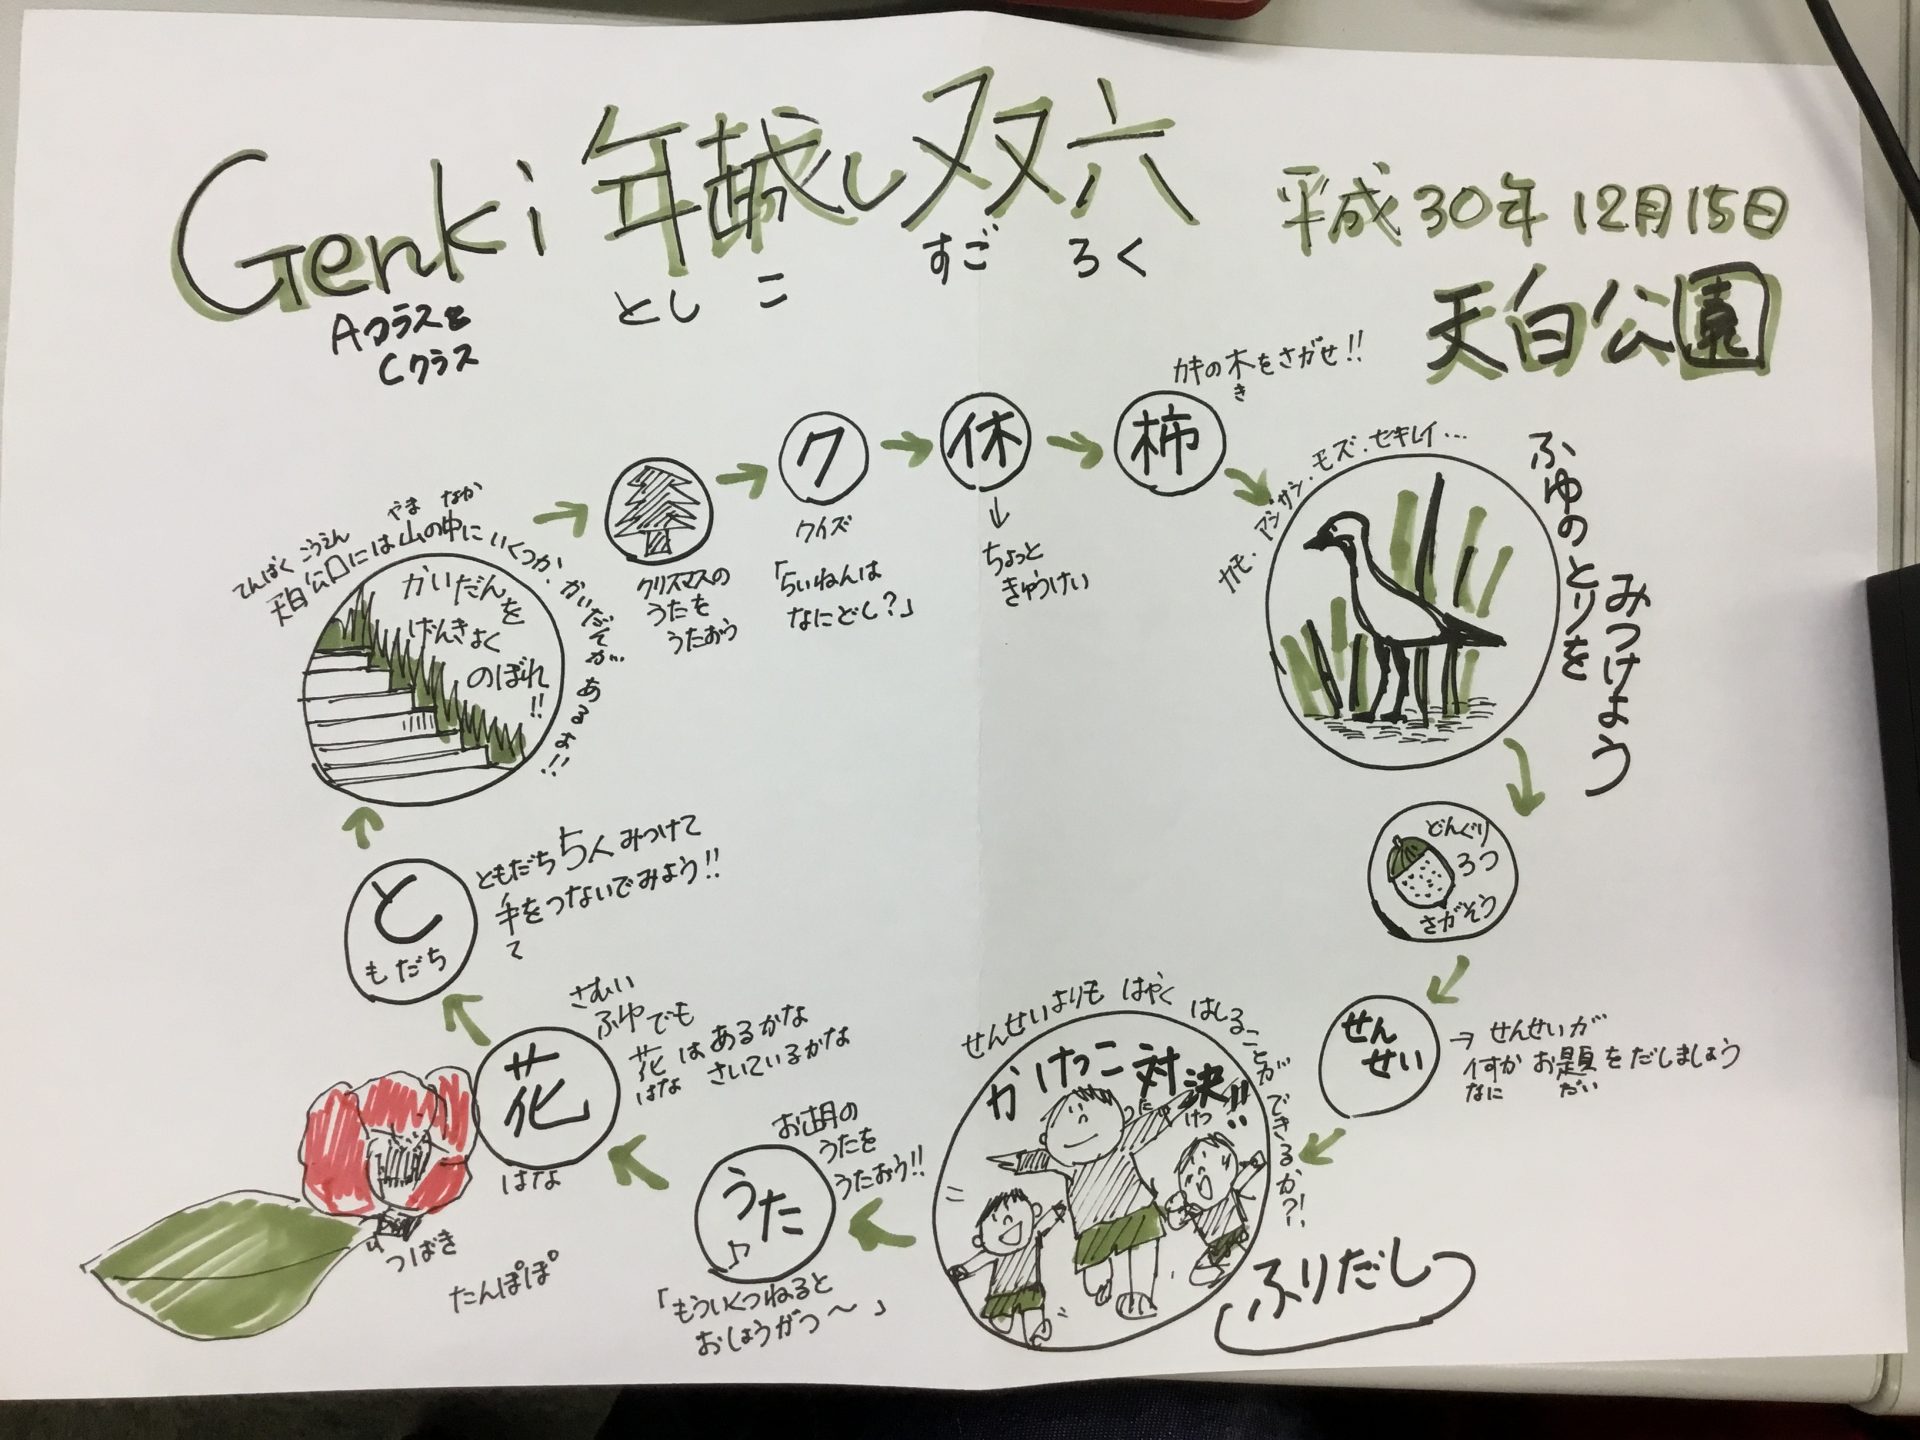 Genki 年越し双六
としこ すごろく
Aクラスと
Cクラス
平成30年12月15日
天白公園
ふりだし
せんせいよりも はやく はしることが できるか?!
かけっこ対決!!
たい けつ
お胡のうたを
うたおう!!
うた♪
「もういくつねると
おしょうがつ〜」
さむい
ふゆでも
花はあるかな
はな さいているかな
花
はな
つばき
たんぽぽ
ともだち5人みつけて
手をつないでみよう!!
て
と
もだち
てんぱくこうえん やま なか
天白公園には山の中にいくつか、かいだんが あるよ!!
かいだんを
げんきよく
のぼれ!!
クリスマスの
うたを
うたおう
ク
クイズ
「らいねんは
なにどし?」
休
↓
ちょっと
きゅうけい
カキの木をさがせ!!
き
柿
カモ、アオサギ、モズ、セキレイ…
ふゆのとりを
みつけよう
どんぐり
3つ
さがそう
せん
せい
→せんせいが
何かお題をだしましょう
なに だい